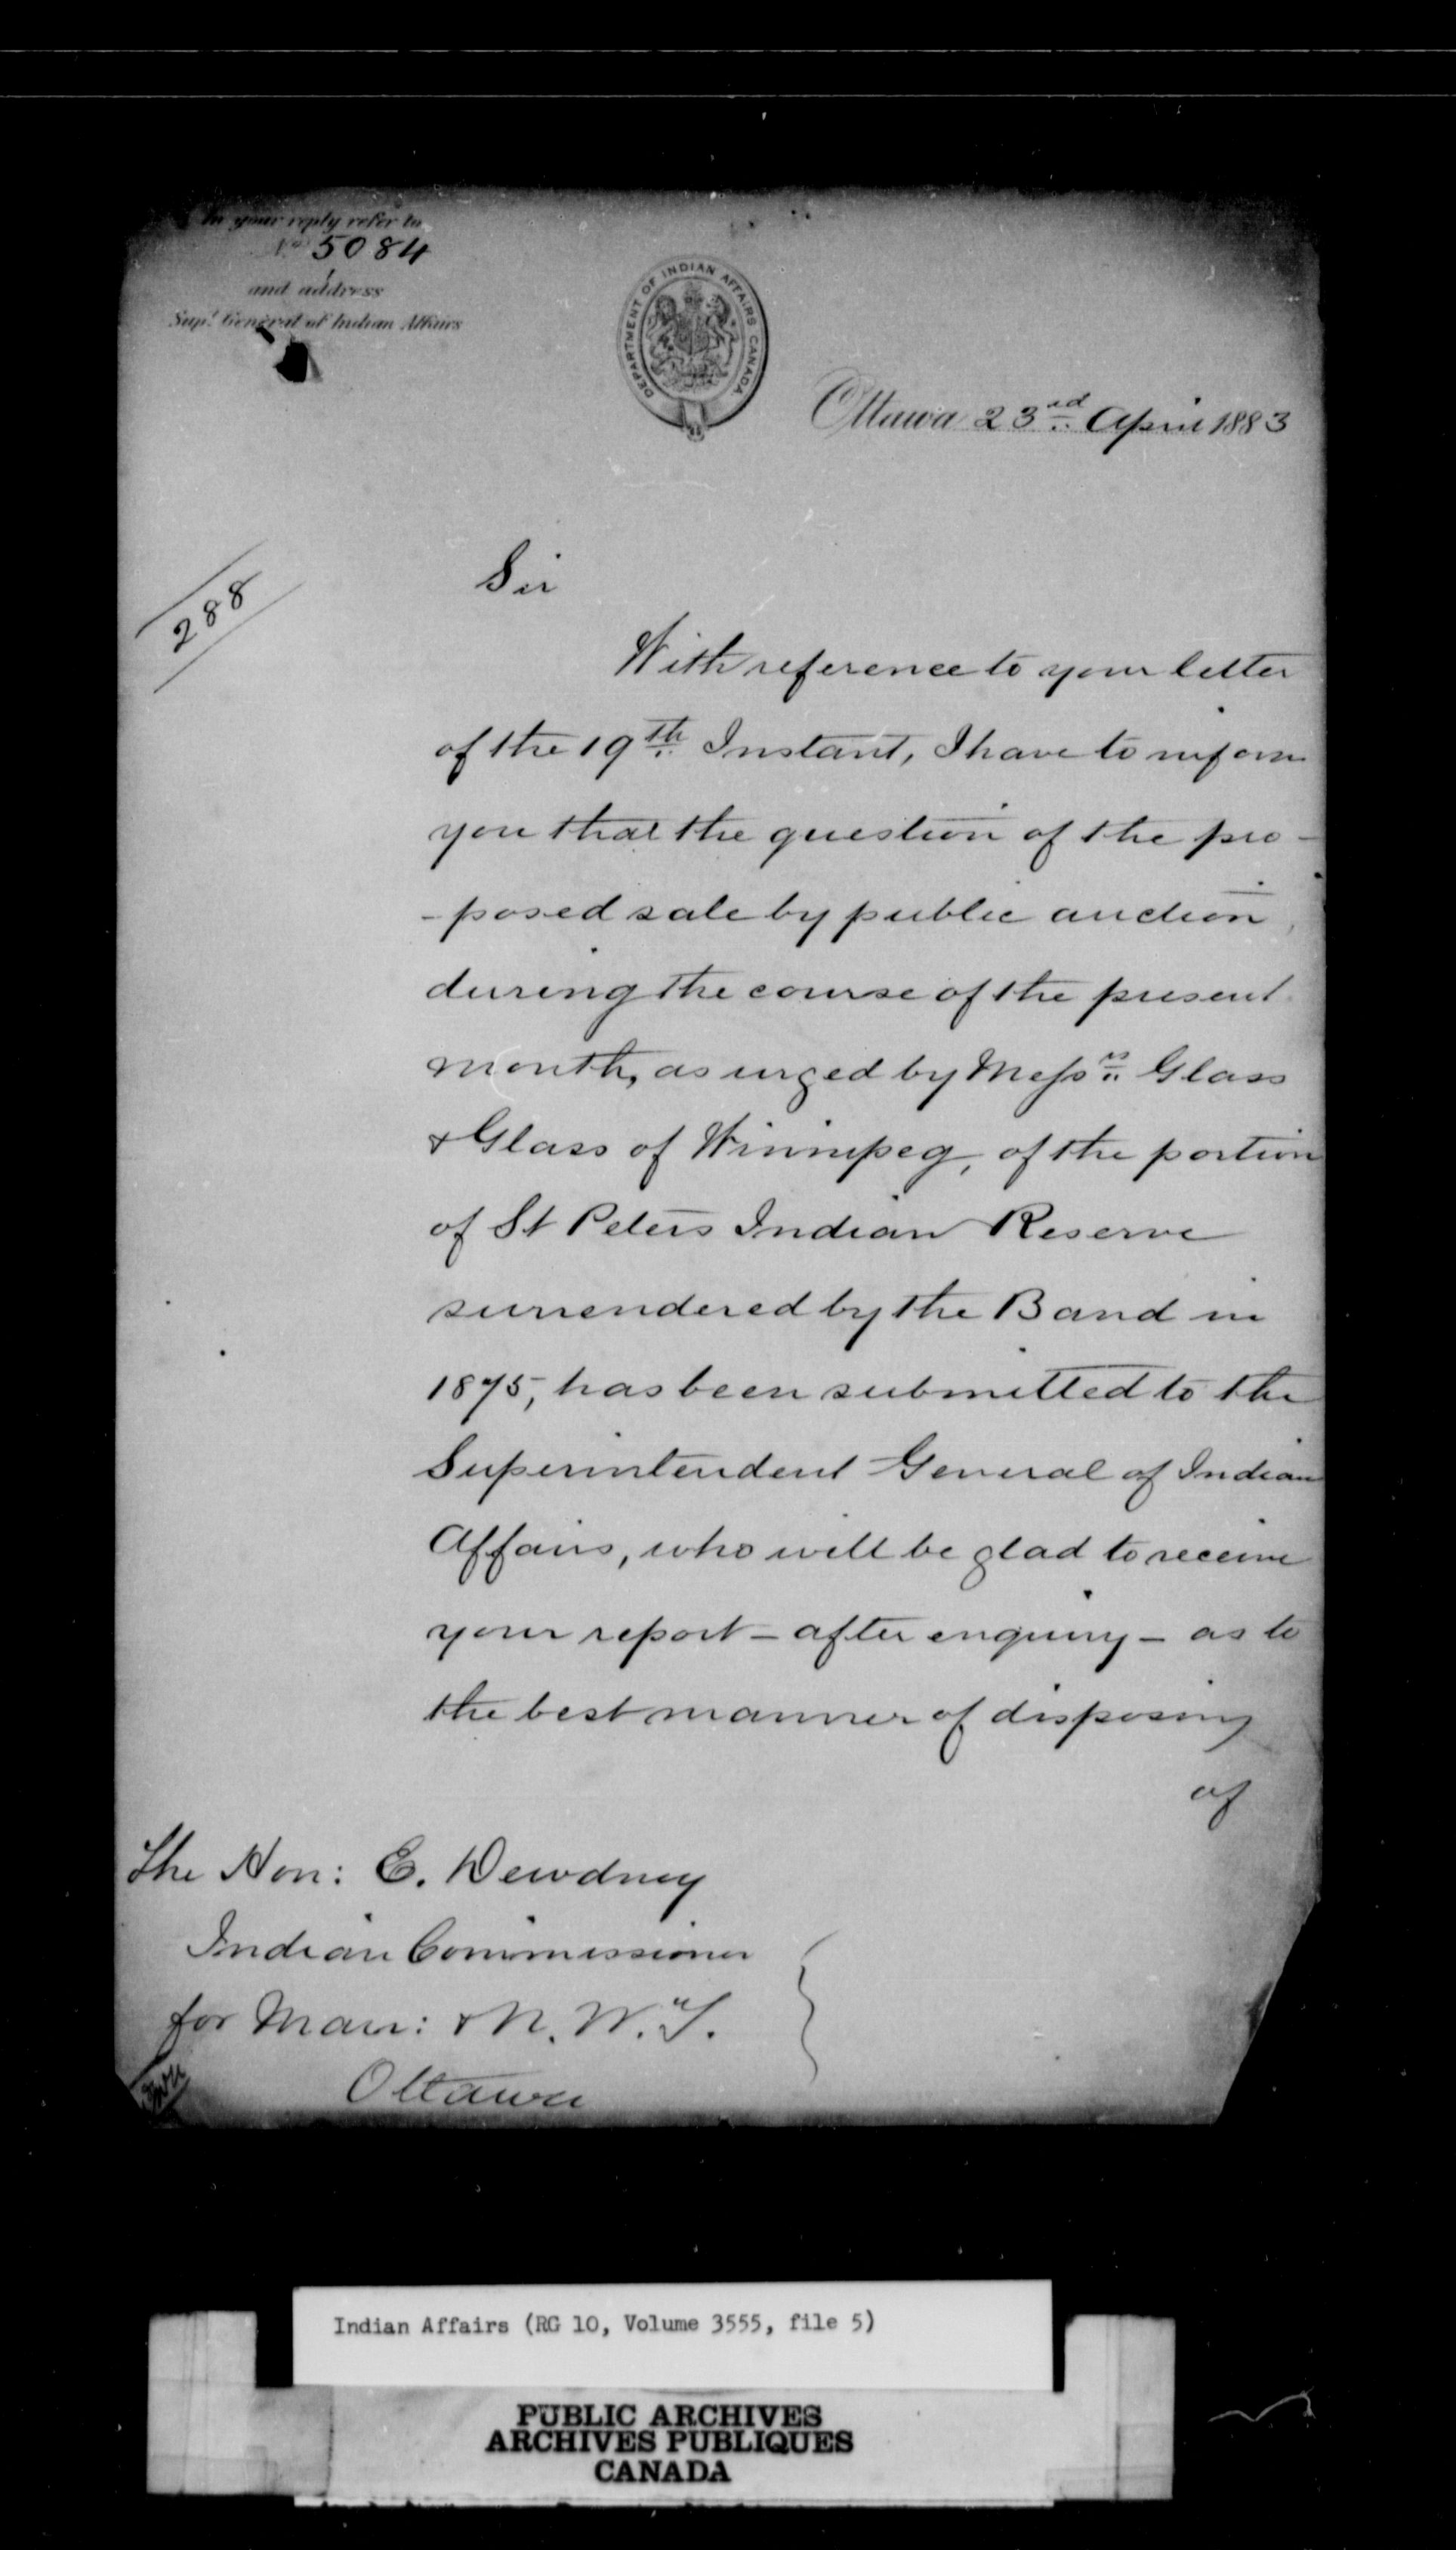 In your reply refer to
No. 5084
and address
Supt. General of Indian Affairs
DEPARTMENT OF INDIAN AFFAIRS CANADA
Ottawa 23rd April 1883
288
Sir
With reference to your letter
of the 19th Instant, I have to inform
you that the question of the pro-
-posed sale by public auction,
during the course of the present
month, as urged by Messrs Glass
& Glass of Winnipeg, of the portion
of St Peters Indian Reserve
surrendered by the Band in
1875, has been submitted to the
Superintendent General of Indian
Affairs, who will be glad to receive
your report - after enquiry - as to
the best manner of disposing
of
The Hon: E. Dewdney
Indian Commissioner
for Man: & N.W.T.
Ottawa
Indian Affairs (RG 10, Volume 3555, file 5)
PUBLIC ARCHIVES
ARCHIVES PUBLIQUES
CANADA